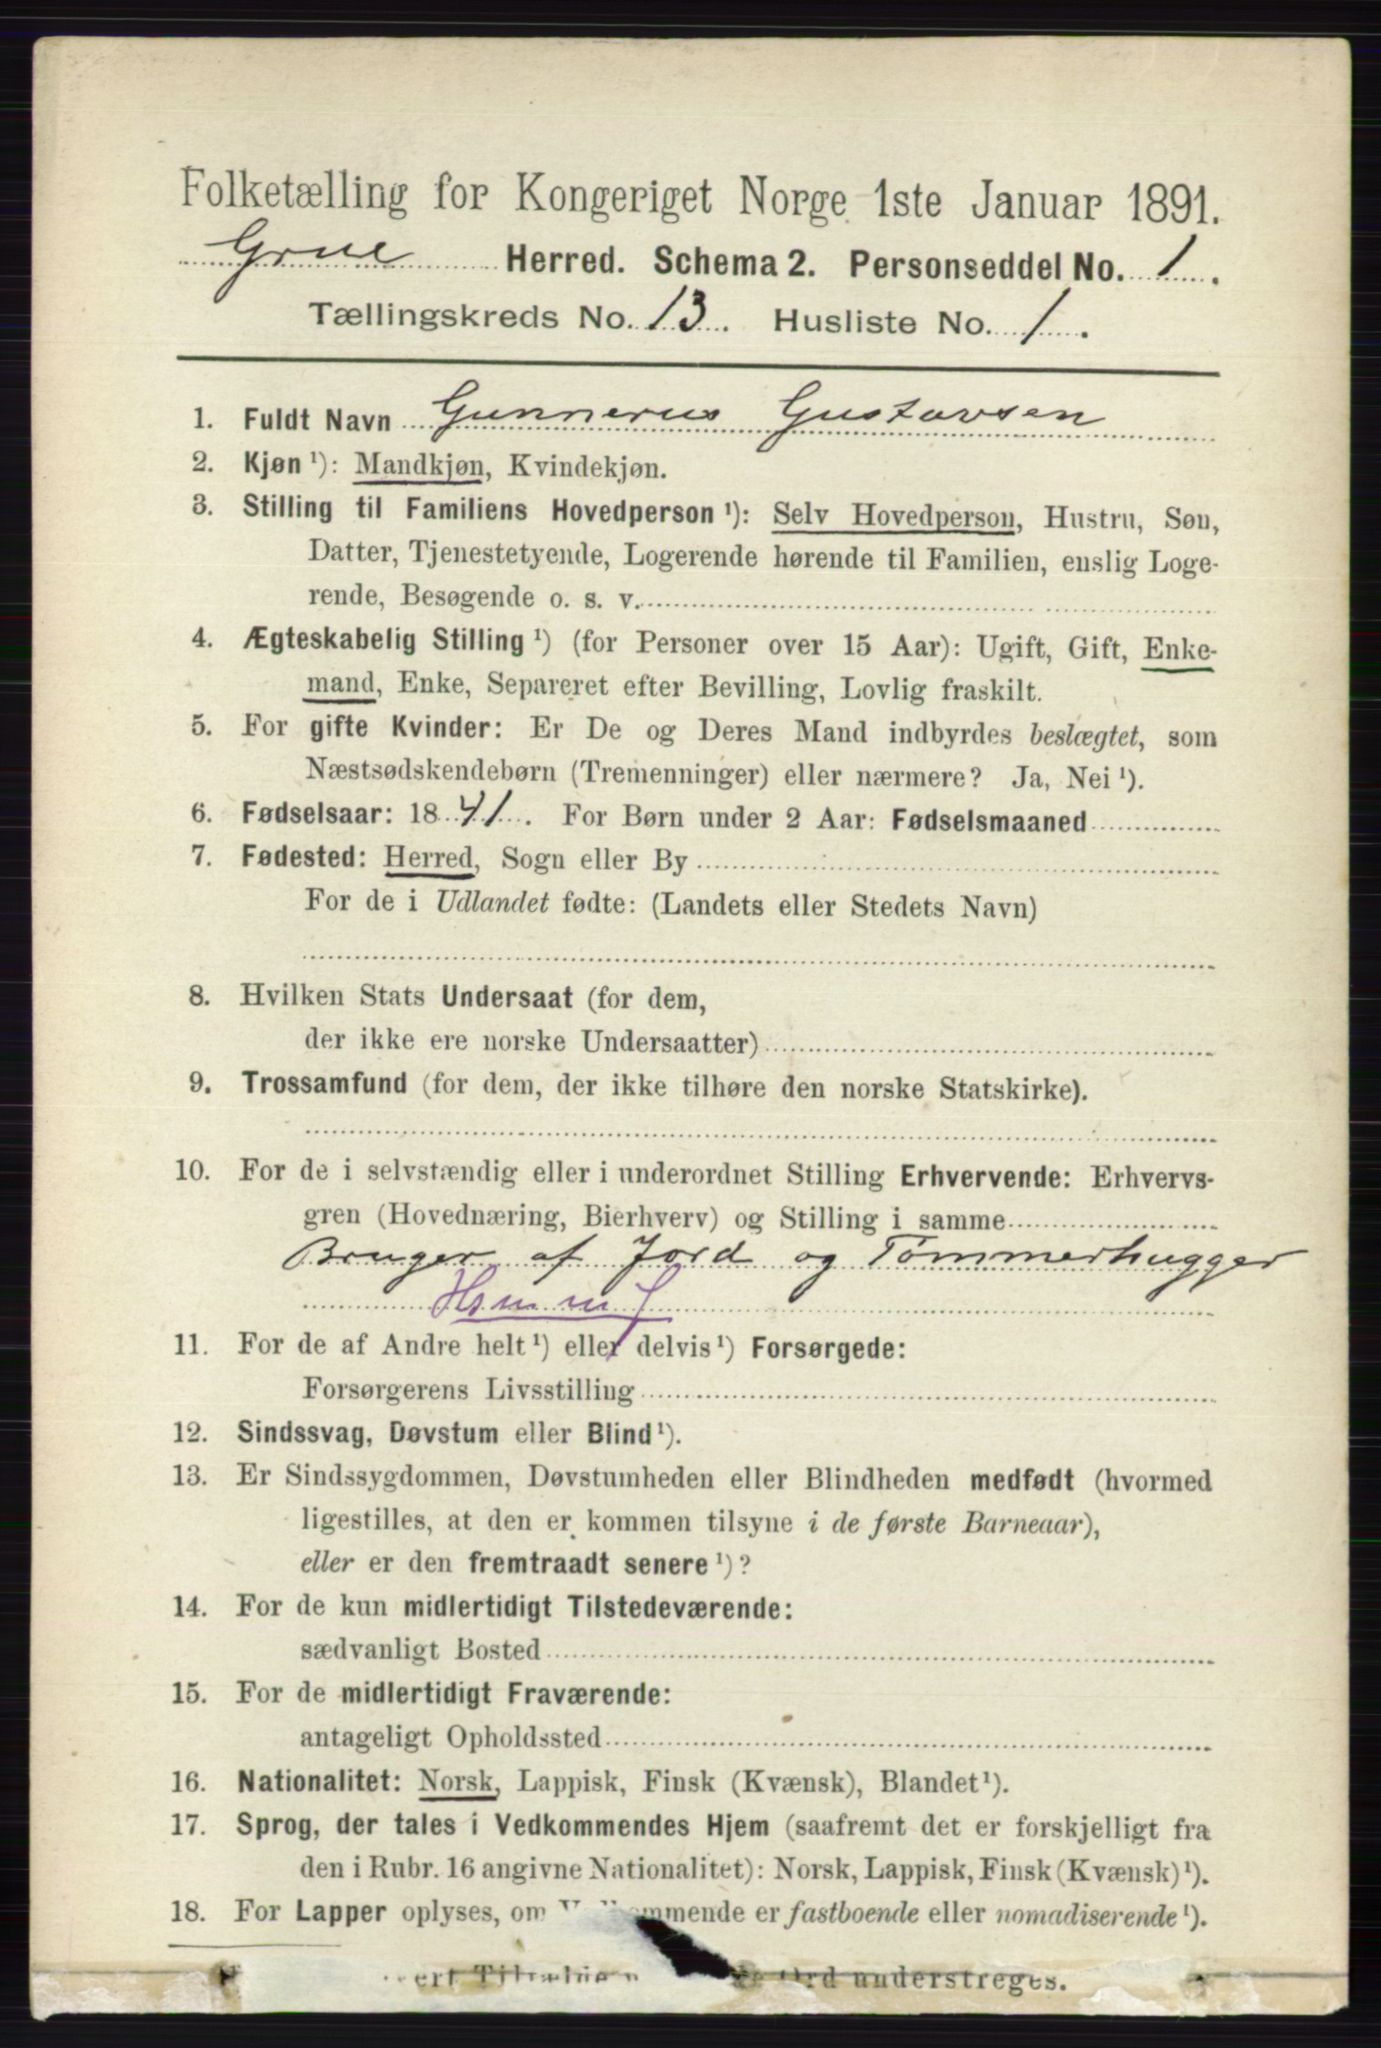 Folketælling for Kongeriget Norge 1ste Januar 1891.
Grue Herred. Schema 2. Personseddel No. 1.
Tællingskreds No. 13. Husliste No. 1.
1. Fuldt Navn Gunnerus Gustavsen
2. Kjøn ¹): Mandkjøn, Kvindekjøn.
3. Stilling til Familiens Hovedperson ¹): Selv Hovedperson, Hustru, Søn,
Datter, Tjenestetyende, Logerende hørende til Familien, enslig Loge-
rende, Besøgende o. s. v.
4. Ægteskabelig Stilling ¹) (for Personer over 15 Aar): Ugift, Gift, Enke-
mand, Enke, Separeret efter Bevilling, Lovlig fraskilt.
5. For gifte Kvinder: Er De og Deres Mand indbyrdes beslægtet, som
Næstsødskendebørn (Tremenninger) eller nærmere? Ja, Nei ¹).
6. Fødselsaar: 1841. For Børn under 2 Aar: Fødselsmaaned
7. Fødested: Herred, Sogn eller By
For de i Udlandet fødte: (Landets eller Stedets Navn)
8. Hvilken Stats Undersaat (for dem,
der ikke ere norske Undersaatter)
9. Trossamfund (for dem, der ikke tilhøre den norske Statskirke).
10. For de i selvstændig eller i underordnet Stilling Erhvervende: Erhvervs-
gren (Hovednæring, Bierhverv) og Stilling i samme
Bruger af Jord og Tømmerhugger
Hsm m J
11. For de af Andre helt ¹) eller delvis ¹) Forsørgede:
Forsørgerens Livsstilling
12. Sindssvag, Døvstum eller Blind ¹).
13. Er Sindssygdommen, Døvstumheden eller Blindheden medfødt (hvormed
ligestilles, at den er kommen tilsyne i de første Barneaar),
eller er den fremtraadt senere ¹)?
14. For de kun midlertidigt Tilstedeværende:
sædvanligt Bosted
15. For de midlertidigt Fraværende:
antageligt Opholdssted
16. Nationalitet: Norsk, Lappisk, Finsk (Kvænsk), Blandet ¹).
17. Sprog, der tales i Vedkommendes Hjem (saafremt det er forskjelligt fra
den i Rubr. 16 angivne Nationalitet): Norsk, Lappisk, Finsk (Kvænsk) ¹).
18. For Lapper oplyses, om mmende er fastboende eller nomadiserende ¹).
Ord understreges.